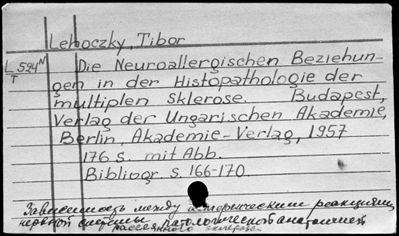 Lehoczky, Tibor
L 594 N
T
Die Neuroallergischen Beziehun-
gen in der Histopathologie der
multiplen Sklerose. Budapest,
Verlag der Ungarischen Akademie,
Berlin, Akademie-Verlag, 1957
176 S. mit Abb.
Bibliogr. S. 166-170
Зависимость между аллергическими реакциями
нервной системы патологической анатомией
рассеянного склероза